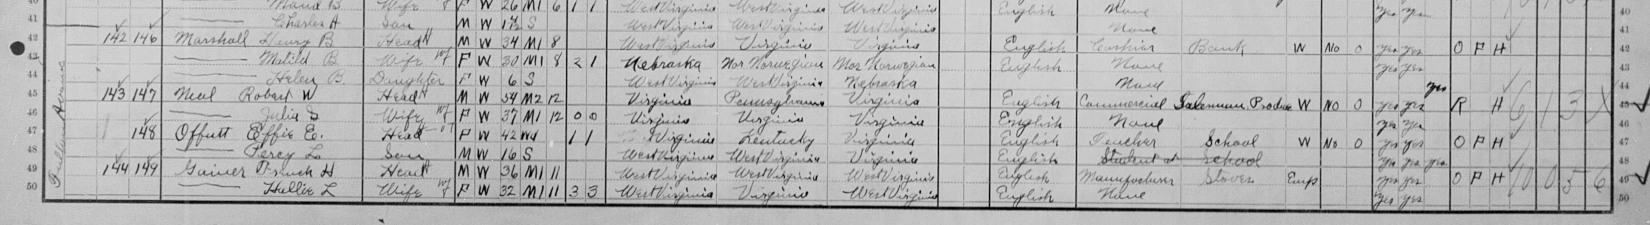 Maud B Wife F W 26 M1 6 1 1 West Virginia West Virginia West Virginia English None yes yes 40
41 Charles H Son M W S West Virginia West Virginia West Virginia None 41
42 142 146 Marshall Henry B Head M W 34 M1 8 West Virginia Virginia Virginia English Cashier Bank W No 0 yes yes O F H 42
43 Wife F W 30 M1 8 2 1 Nebraska Nor Norwegian Nor Norwegian English None yes yes 43
44 Helen B Daughter F W 6 S West Virginia West Virginia Nebraska None yes 44
45 143 147 Neal Robert W Head M W 54 M2 12 Virginia Pennsylvania Virginia English Commercial Salesman Produce W No 0 yes yes R H 6 1 3 X 45
46 Julia S Wife F W 37 M1 12 0 0 Virginia Virginia Virginia English None yes yes 46
47 148 Offutt Effie E. Head F W 42 Wd 1 1 Virginia Kentucky Virginia English Teacher School W No 0 yes yes O F H 47
48 Percy L Son M W 16 S West Virginia West Virginia Virginia English Student at School yes yes yes 48
49 144 149 Gainer French H Head M W 36 M1 11 West Virginia West Virginia West Virginia English Manufacturer Stoves Emp yes yes O F H 0 5 6 49
50 Wife F W 32 M1 11 3 3 West Virginia Virginia West Virginia English None yes yes 50
Avenue